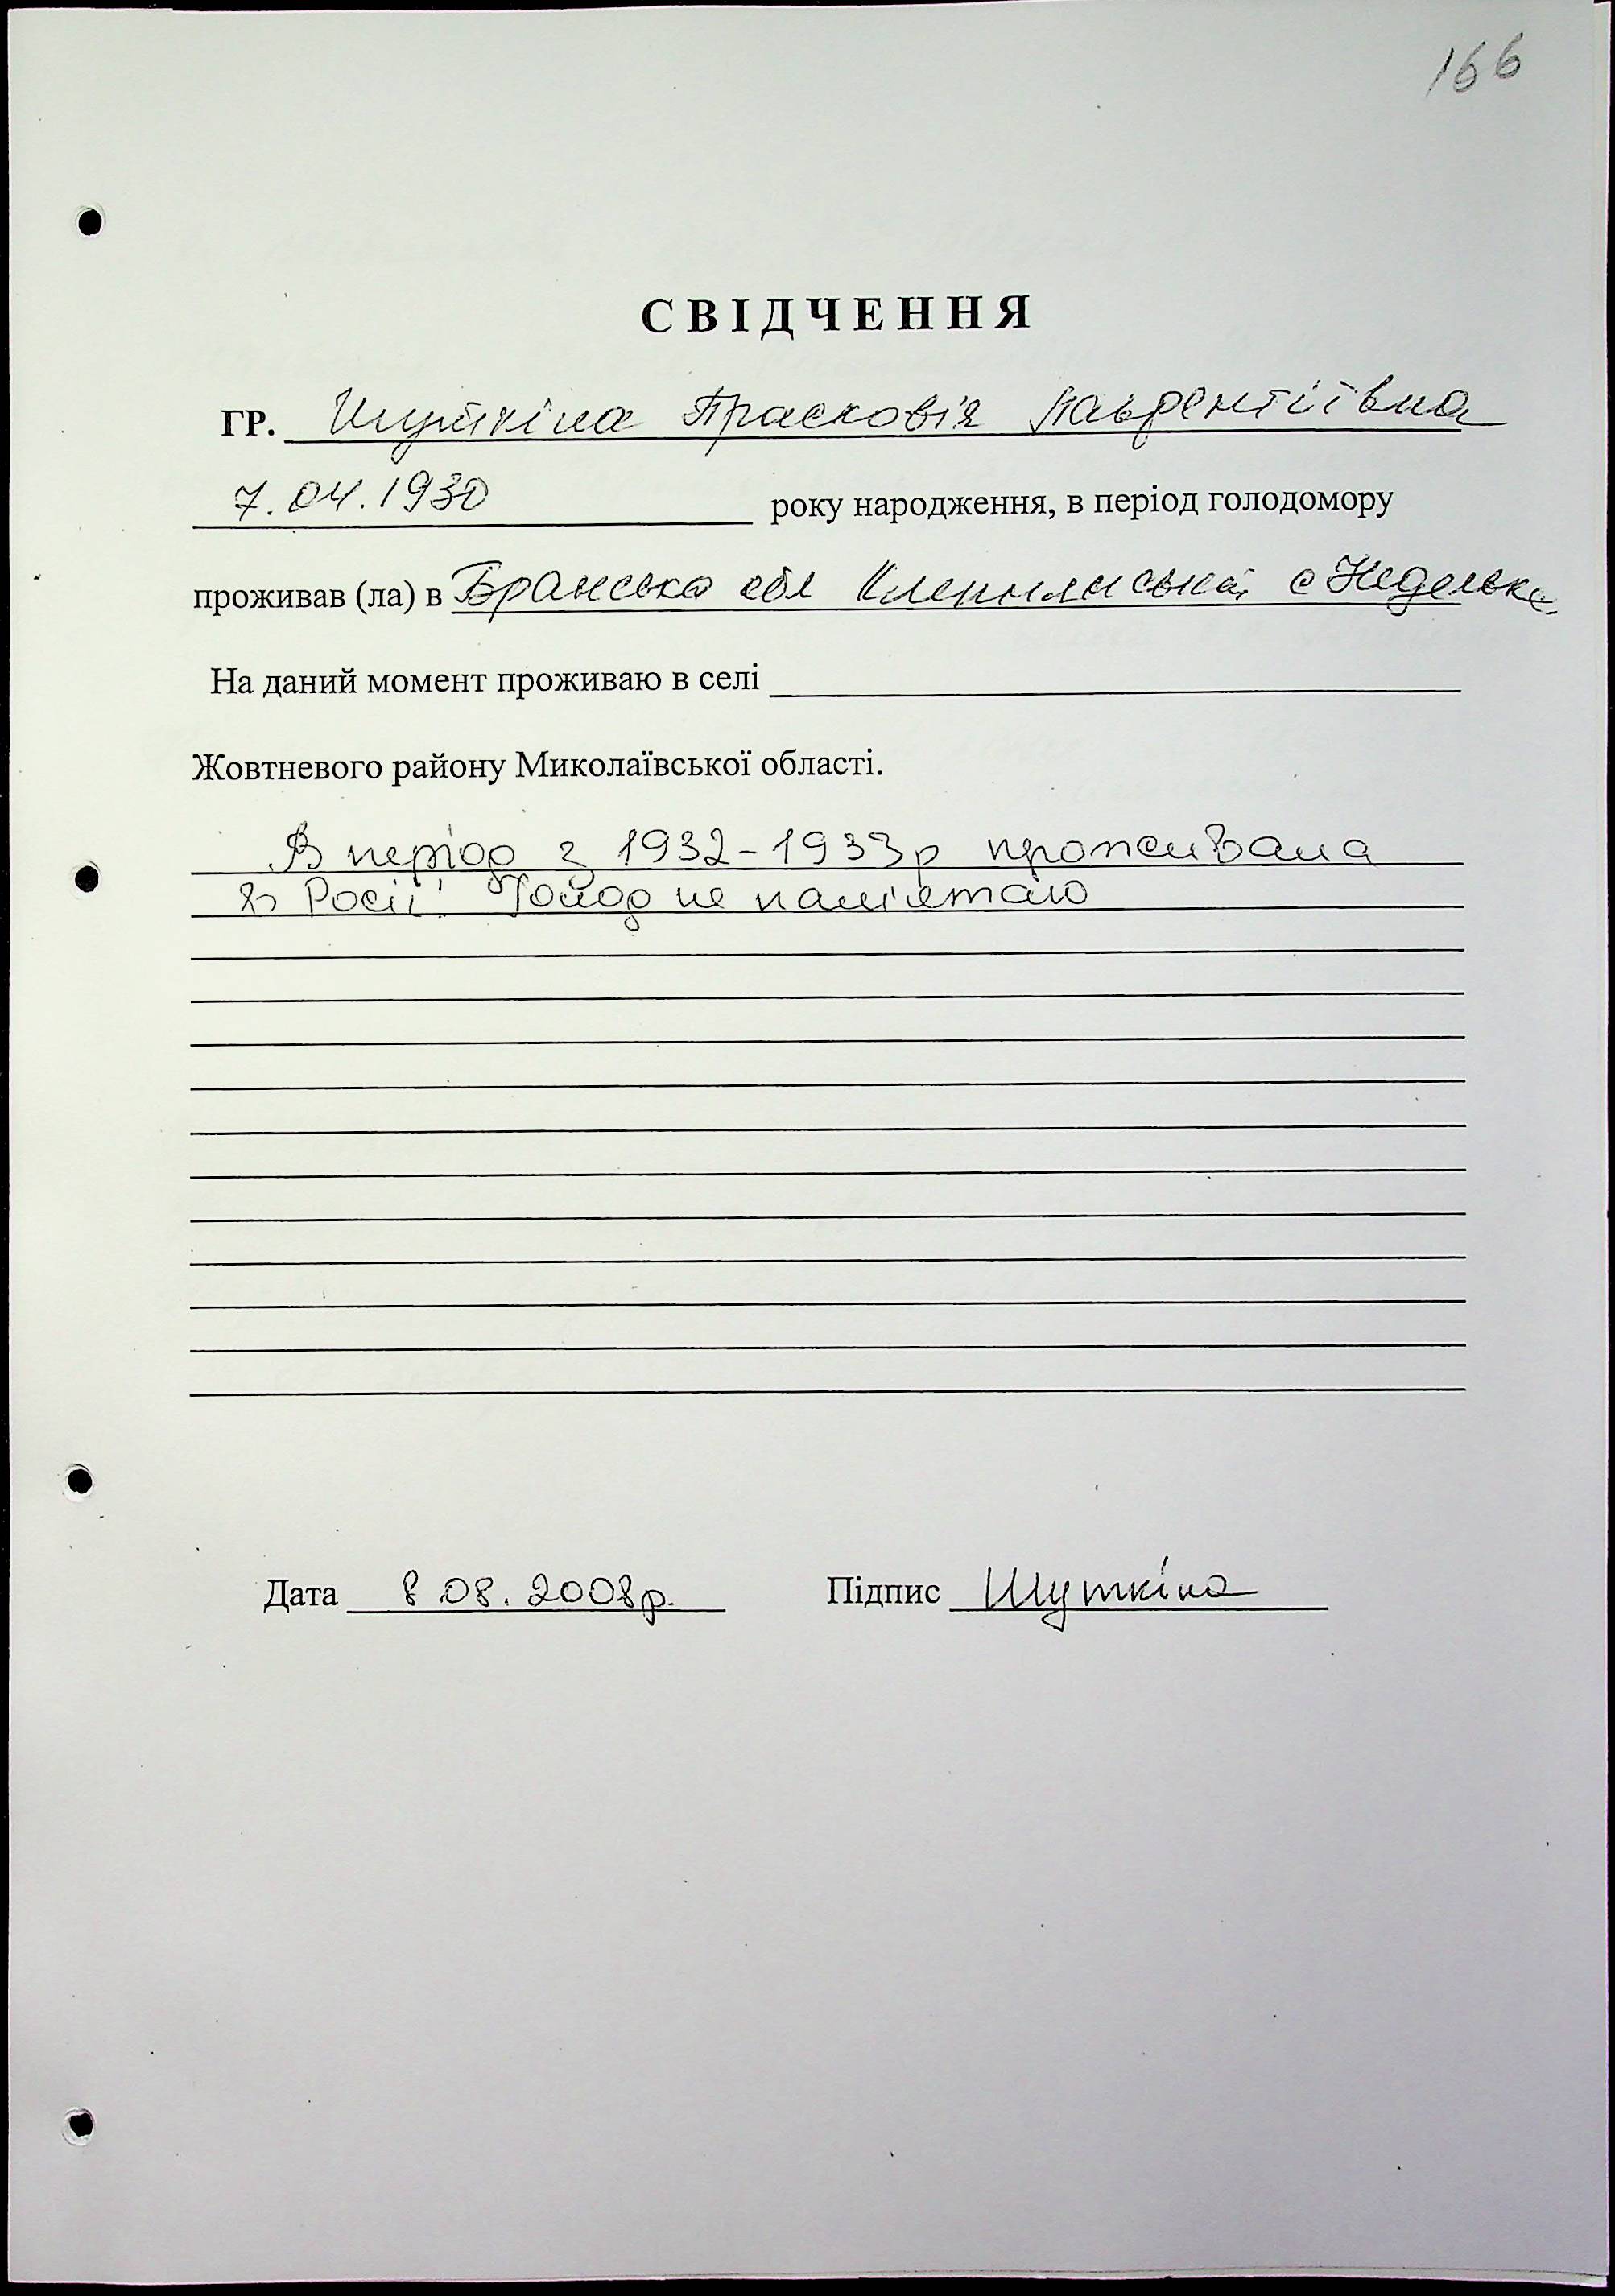 166
СВІДЧЕННЯ
ГР. Шуткіна Прасковія Лаврентіївна
7.04.1930 року народження, в період голодомору
проживав (ла) в Брянська обл с Неделька
На даний момент проживаю в селі
Жовтневого району Миколаївської області.
В період з 1932-1933р проживала
в Росії. Голод не пам'ятаю
Дата 8.08.2008р. Підпис Шуткіна